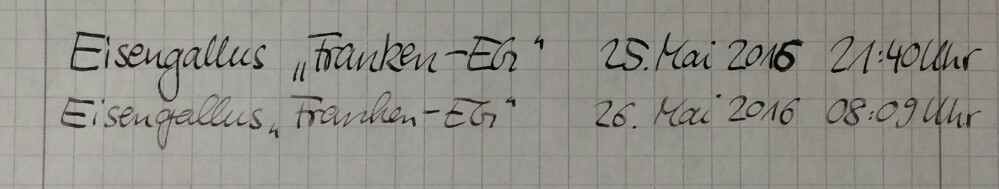 Eisengallus „Franken-EG“ 25. Mai 2016 21:40 Uhr
Eisengallus „Franken-EG“ 26. Mai 2016 08:09 Uhr